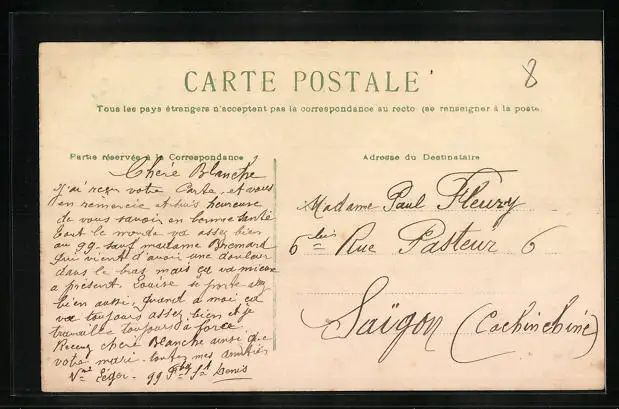 8
CARTE POSTALE
Tous les pays étrangers n'acceptent pas la correspondance au recto (se renseigner à la poste
Partie réservée à la Correspondance
Adresse du Destinataire
Chère Blanche
J'ai reçu votre Carte, et vous
en remercie et suis heureuse
de vous savoir en bonne santé
tout le monde va assez bien
au 99 sauf madame
qui vient d'avoir une douleur
dans le bras mais ça va mieux
a présent. Louise se porte assez
bien aussi, quant a moi ça
va toujours assez bien et je
travaille toujours a force.
Recevez chère Blanche ainsi que
votre mari toutes mes amitiés
Vve Léger. 99 Fbg St Denis
Madame Paul Fleury
6 bis Rue Pasteur 6
Saïgon (Cochinchine)